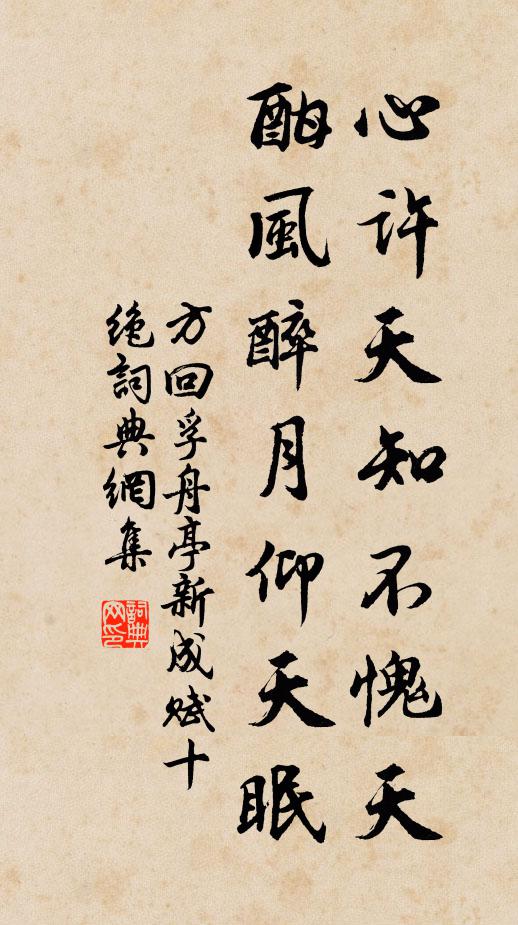 心许天知不愧天
酣風醉月仰天眠
方回孚舟亭新成赋十
绝詞典網集
詞典網印